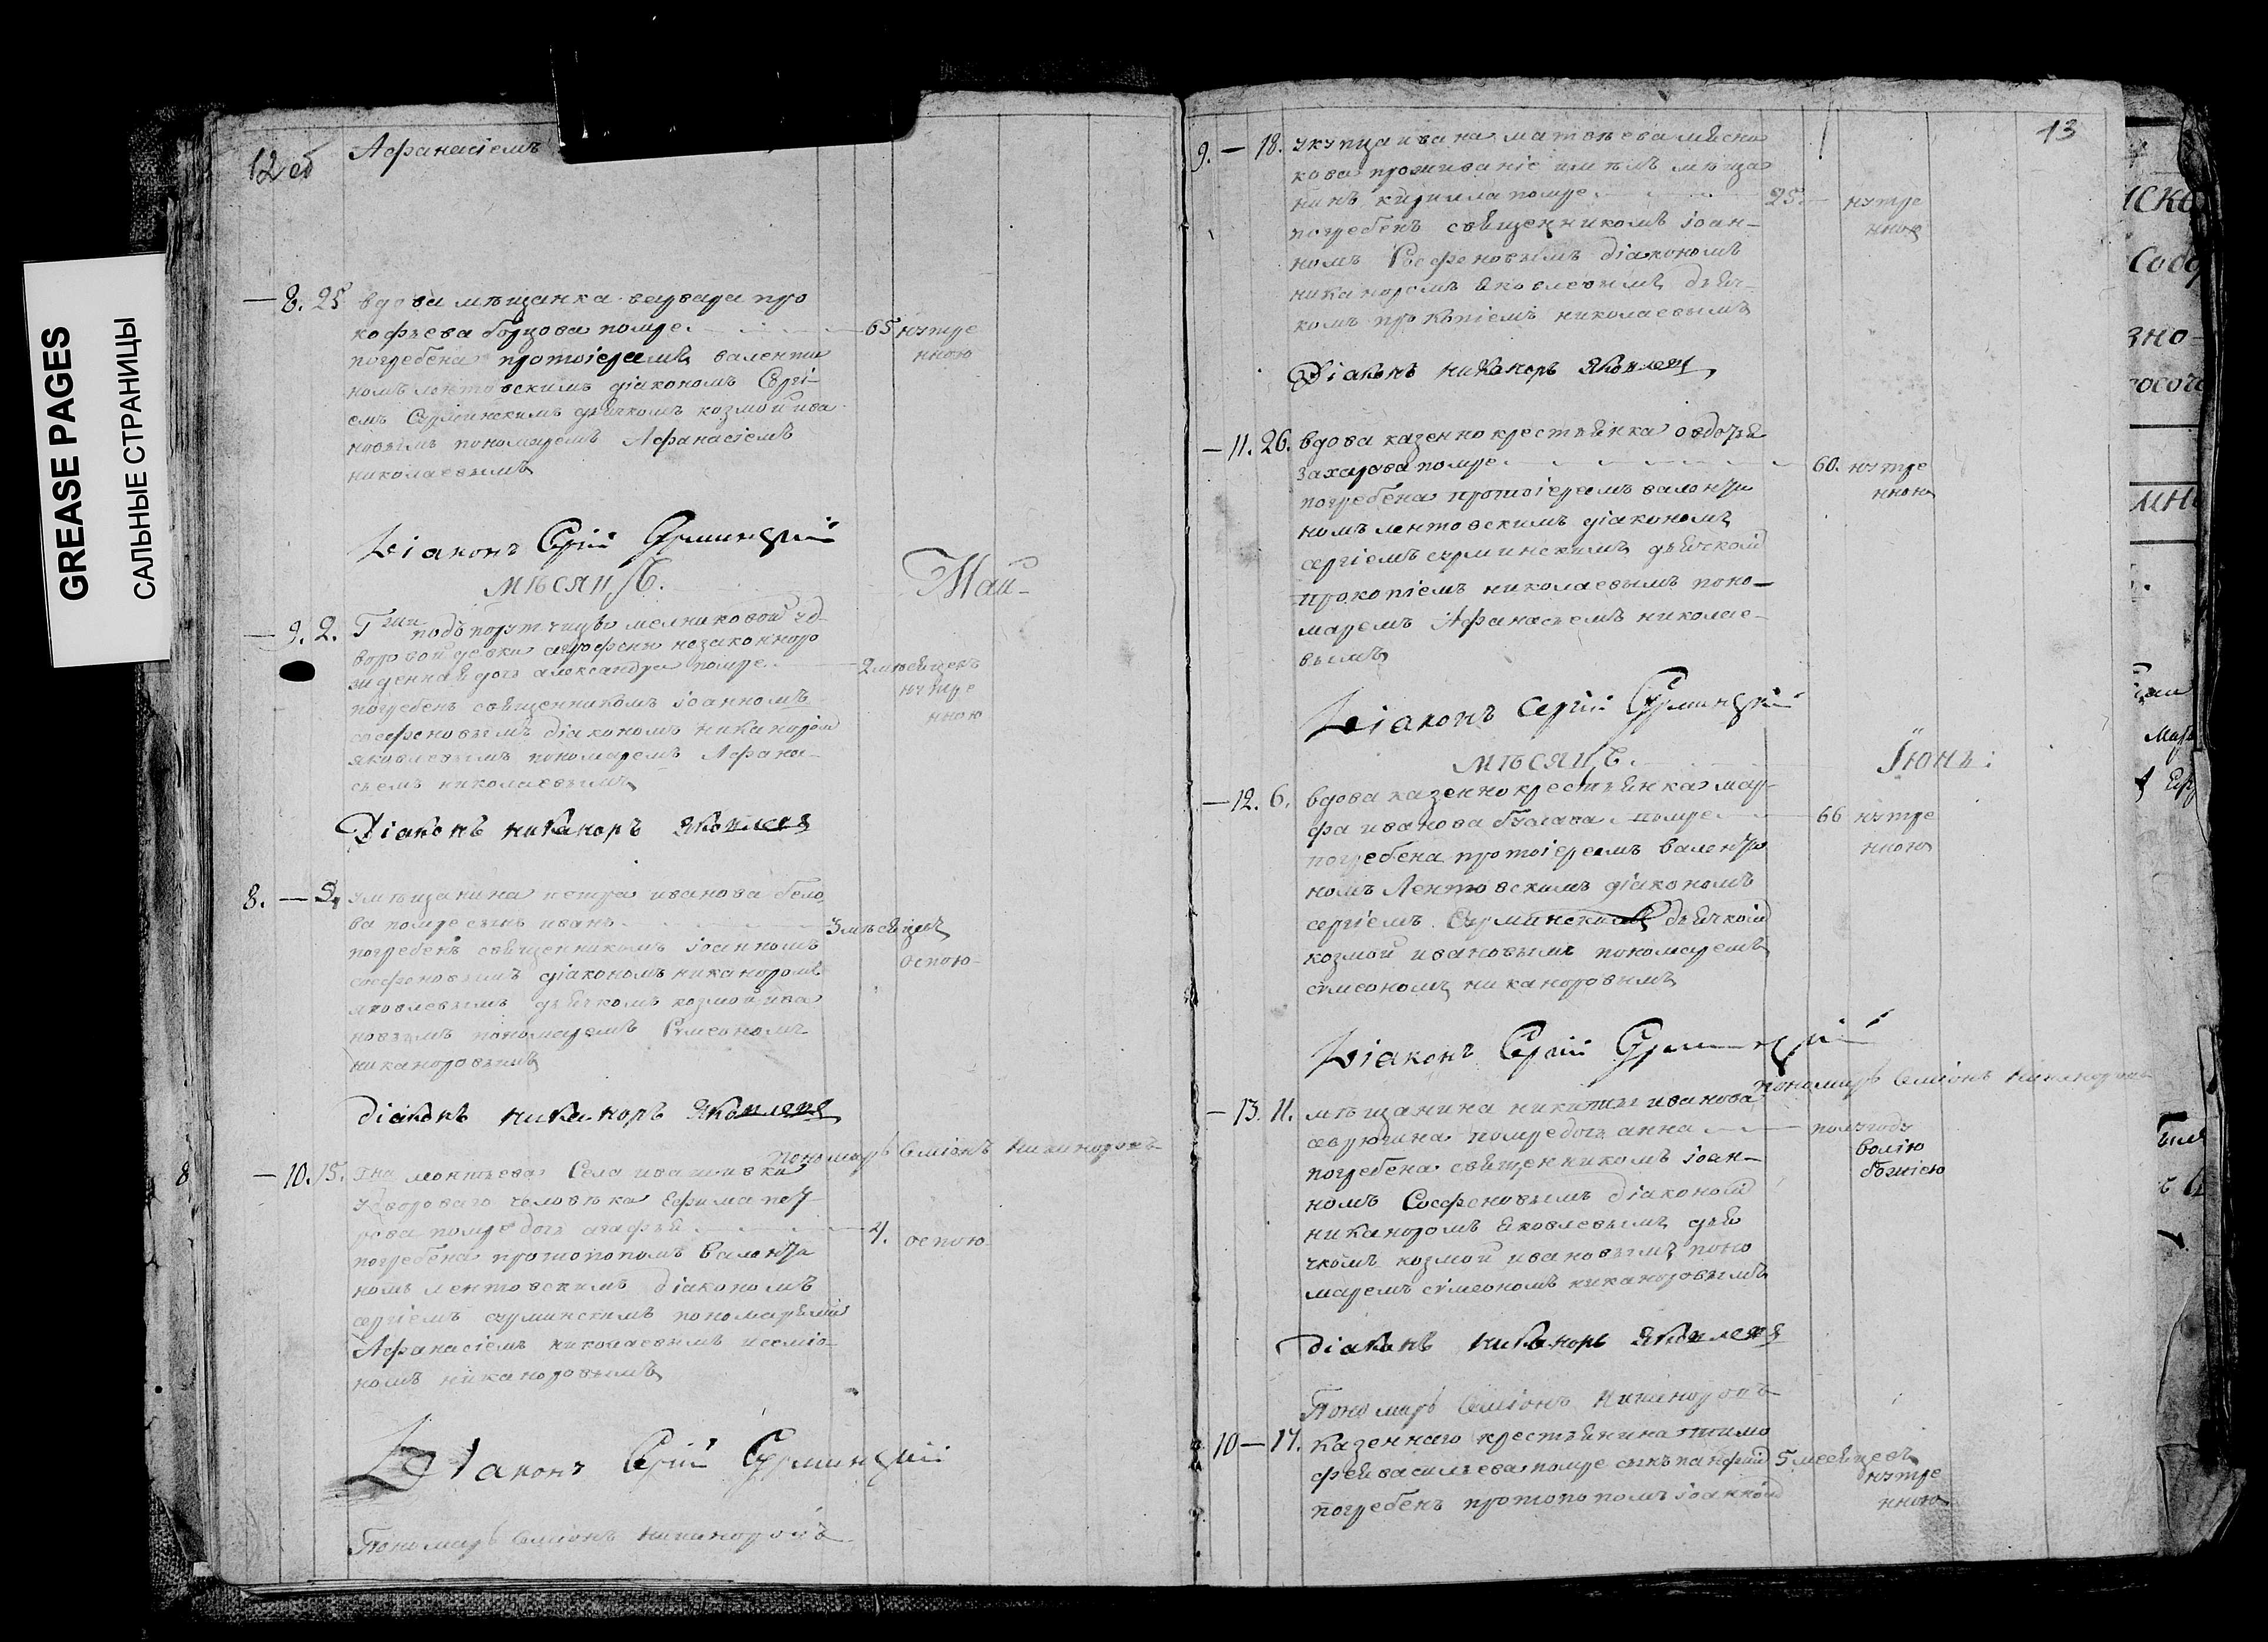 GREASE PAGES
САЛЬНЫЕ СТРАНИЦЫ
12 об
Афанасіемъ
— 8. 25 вдова мѣщанка варвара про
кофьева борзова помре 65 нутре
погребена протоіереемъ валенти нною
номъ лентовскимъ діакономъ Сергі-
емъ Сурминскимъ дьячкомъ козмой ива
новымъ пономаремъ Афанасіемъ
николаевымъ
Діаконъ Сергій Сурминскій
МѢСЯЦЪ. Май
— 9. 2. Гжи подъпорутчицы мелниковой уд-
воровой девки незаконноро
жденная дочь александра помре 2 мѣсяцевъ
нутре
погребенъ священникомъ іоанномъ нною
сосфеновымъ діакономъ никаноромъ
яковлевымъ пономаремъ Афана-
сьемъ николаевымъ
Діаконъ никаноръ Яковлевъ
8. — 9. умѣщанина петра иванова бело
ва помре сынъ иванъ 3 мѣсяцевъ
погребенъ священникомъ іоанномъ оспою
сосфеновымъ діакономъ никаноромъ
яковлевымъ дьячкомъ козмой ива
новымъ пономаремъ Симеономъ
никаноровымъ
діаконъ никаноръ Яковлевъ
пономарь Семіонъ Никаноровъ
8 — 10. 15. Гна леонтьева Села ивашевки
удвороваго человѣка Ефима пет
рова помре дочь агафья 4. оспою
погребена протопопомъ валенти
номъ лентовскимъ діакономъ
сергіемъ сурминскимъ пономарями
Афанасіемъ николаевымъ и семіо
номъ никаноровымъ
Діаконъ Сергій Сурминскій
Пономарь Семіонъ Никаноровъ
13
9. — 18. укупца ивана матвѣева мясни
кова проживаніе имѣлъ мѣща
нинъ кирилла помре 25. нутре
погребенъ священникомъ іоан- нною
номъ Сосфеновымъ діакономъ
никаноромъ Яковлевымъ дьяч-
комъ прокъпіемъ николаевымъ
Діаконъ никаноръ Яковлевъ
— 11. 26. вдова казенно крестьянка овдотья
захарова помре 60. нутре
погребена протоіереемъ валенти нною
номъ лентовскимъ діакономъ
сергіемъ сурминскимъ дьячкомъ
прокопіемъ николаевымъ поно-
маремъ Афанасьемъ николае-
вымъ
Діаконъ Сергій Сурминскій
МѢСЯЦЪ. Іюнь:
— 12. 6. вдова казенно крестьянка мар-
фа иванова помре 66 нутре
погребена протоіереемъ валенти нною
номъ Лентовскимъ діакономъ
сергіемъ Сурминскимъ дьячкомъ
козмой ивановымъ пономаремъ
симеономъ никаноровымъ
Діаконъ Сергій Сурминскій
пономарь Семіонъ Никаноровъ
— 13. 11. мѣщанина никиты иванова
аврюгина помре дочь анна полугоду
погребена священникомъ іоан- волію
номъ Сосфеновымъ діакономъ божіею
никаноромъ Яковлевымъ дья
чкомъ козмой ивановымъ поно
маремъ симеономъ никаноровымъ
діаконъ никаноръ Яковлевъ
Пономарь Семіонъ Никаноровъ
10 — 17. казеннаго крестьянина тимо
фея васильева помре сынъ панфилъ 5 месяцевъ
нутре
погребенъ протопопомъ іоанномъ нною